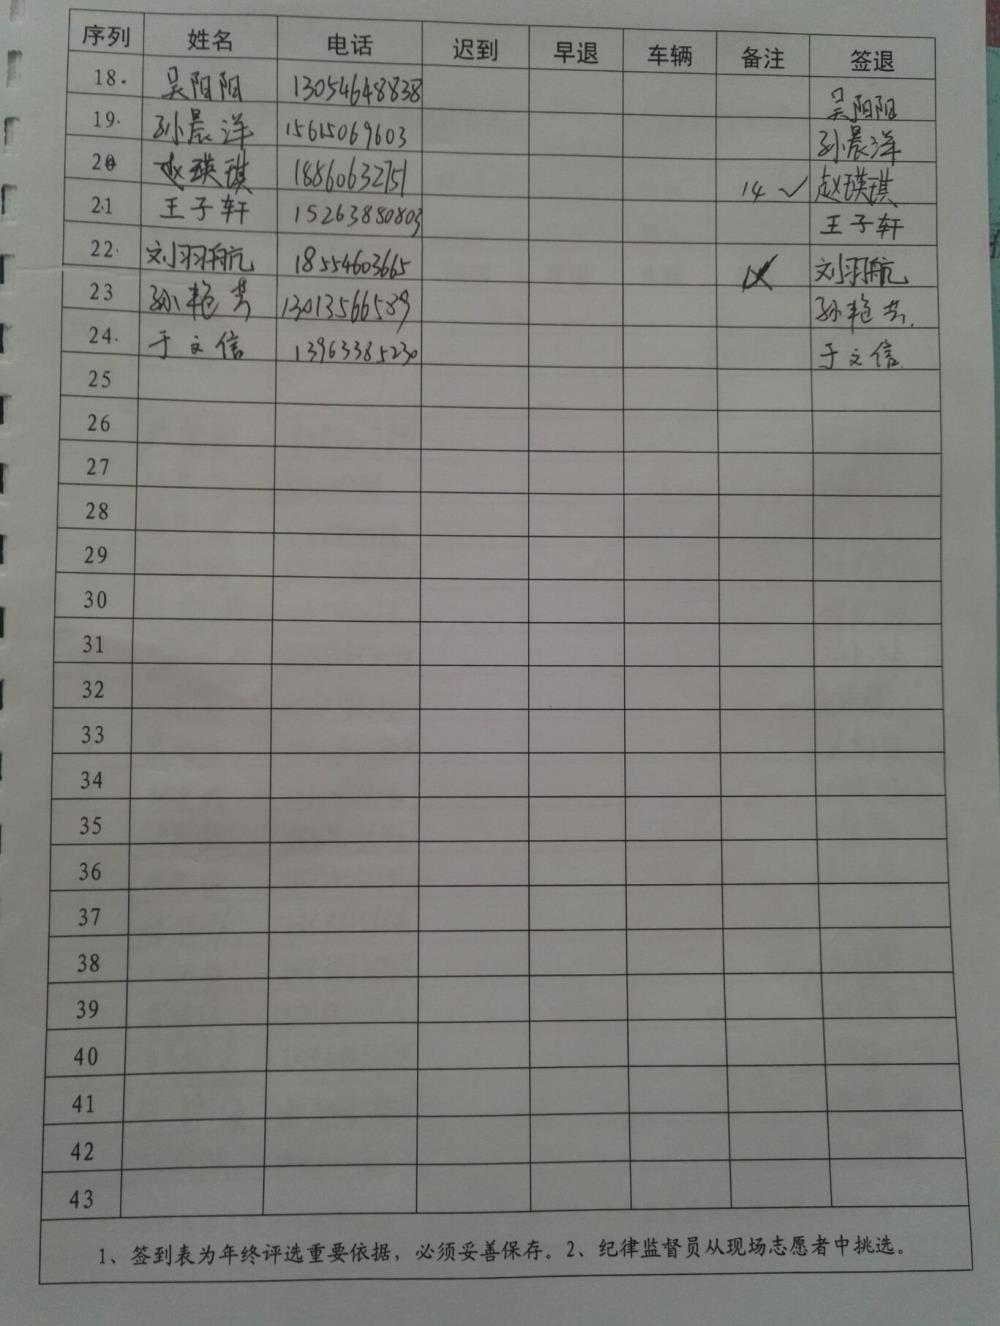 序列 姓名 电话 迟到 早退 车辆 备注 签退
18. 吴阳阳 13054648838 吴阳阳
19. 孙晨洋 15615069603 孙晨洋
20 赵瑛琪 18860632751 14 ✓ 赵瑛琪
21 王子轩 15263880803 王子轩
22. 刘羽航 18554603665 刘羽航
23 孙艳芳 13013566589 孙艳芳.
24. 于文信 13963385230 于文信.
25
26
27
28
29
30
31
32
33
34
35
36
37
38
39
40
41
42
43
1、签到表为年终评选重要依据，必须妥善保存。2、纪律监督员从现场志愿者中挑选。